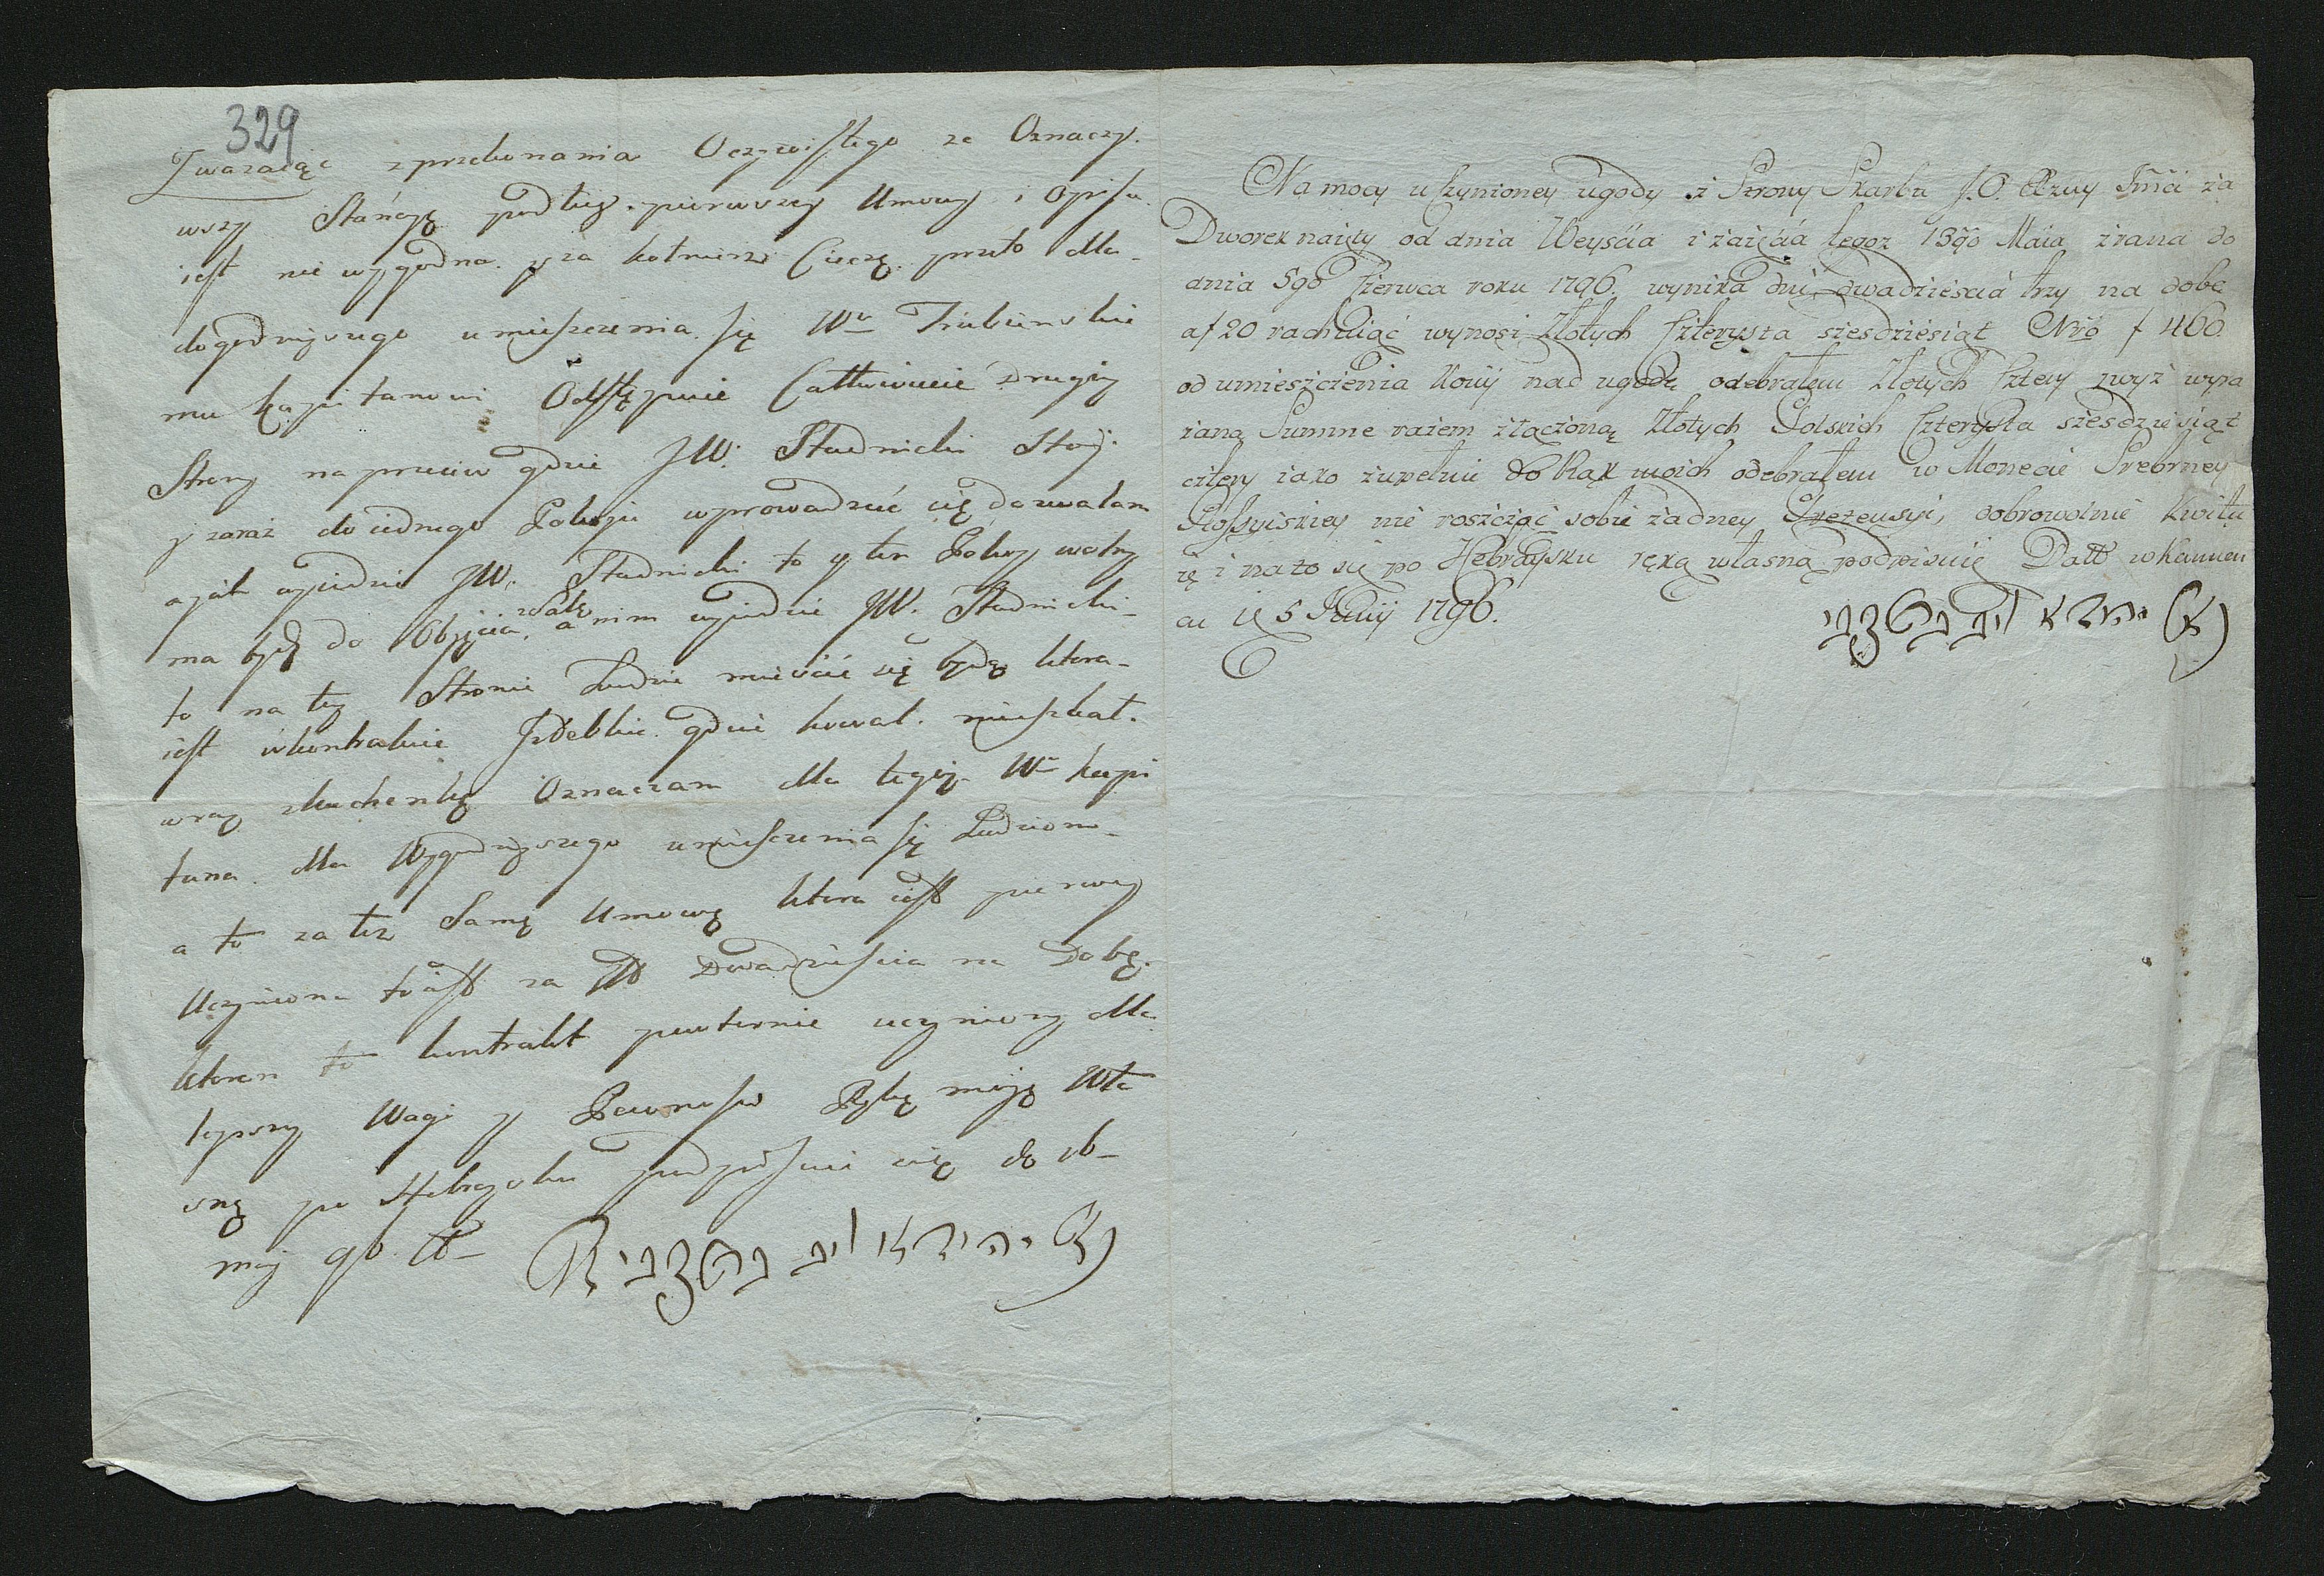 329
Zwazaiąc z przekonania Oczywistego ze Oznaczy.
wszy Stańcyę podług pierwszey Umowy i Opisu
iest nie wygodna y za kołnierz Ciecze przeto dla
dogodnijszego umieszczenia się Wu Trubińskie
mu Kapitanowi Odstępuie Całkowicie Drugiey
Strony na przeciw gdzie JW. Studnicki Stoij
y zaraz do iednego Pokoju wprowadzić się dozwalam
a jak wyiedzie JW. Studnicki to y ten Pokoy wolny
ma bydź do Objęcia, a nim wyiedzie JW. Studnicki
to na tey Stronie Ludzie mieścić się będą ktora
iest w kontrakcie Izdebkie gdzie kował mieszkał.
wraz z kuchenką Oznaczam dla tegoż Wo Kapi
tana dla Wygodnijszego umieszczenia się Ludziom
a to za też Samę Umowę ktora iest pierwey
Uczyniona to iest za Dwadzieścia na Dobę.
ktoren to kontrakt powtornie uczyniony dla
lepszey Wagi y Pewności Ręką moją Wła
sną po Hebrejsku podpisuie się do ob-
Na mocy uczynioney ugody z Strony Skarbu J.O. Xżny Jmći za
Dworek naięty od dnia Weyścia i zaięcia tegoz 13go Maia zrana do
dnia 5go Czerwca roku 1796. wynika dni dwadzieścia trzy na dobę
a f 20 rachuiąc wynosi Złotych Czterysta sześdziesiąt Nro f 460.
od umieszczenia Koni nad ugodę odebrałem Złotych Cztery zwyż wyra
żaną Summe razem złączoną Złotych Polskich Czterysta sześdziesiąt
cztery iako zupełnie do Rąk moich odebrałem w Monecie Srebrney
Rossyiskiey nie roszcząc sobie żadney Pretensyi, dobrowolnie kwitu
ię i na to się po Hebraysku ręką własną podpisuię Datt w Kamień
cu ię 5 Junij 1796.